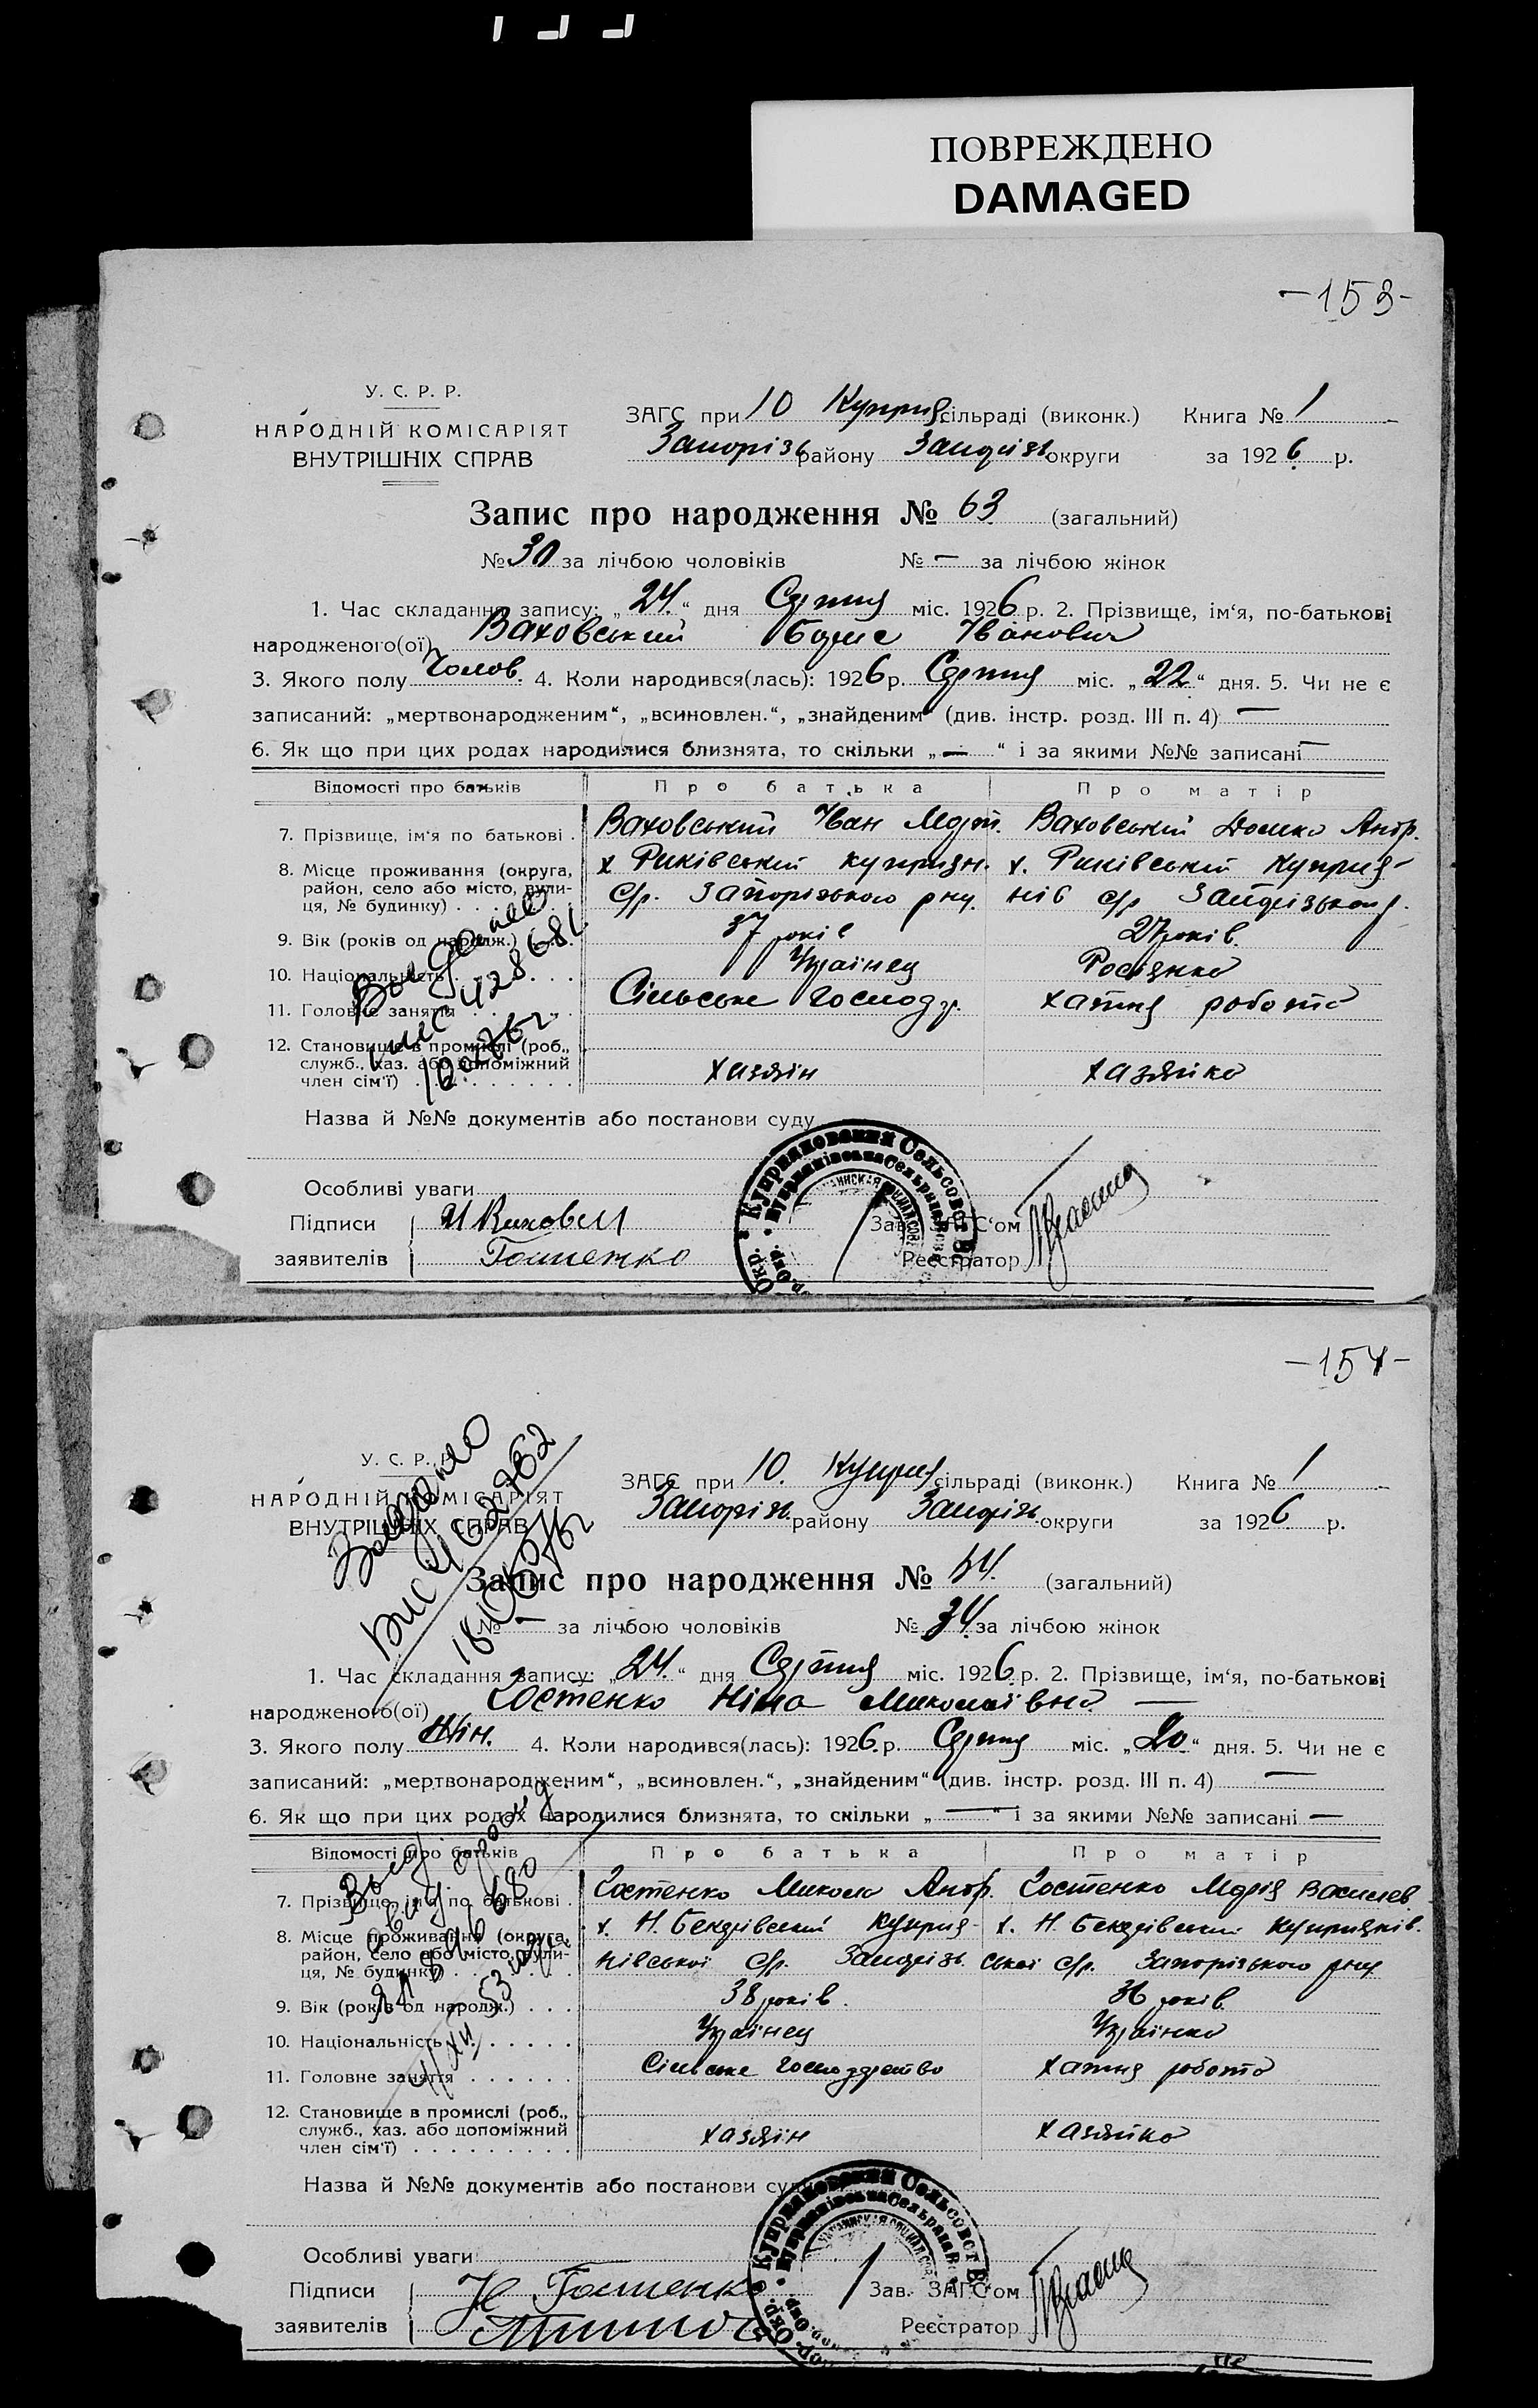 ПОВРЕЖДЕНО
DAMAGED
-153-
У. С. Р. Р.
НАРОДНІЙ КОМІСАРІЯТ
ВНУТРІШНІХ СПРАВ
ЗАГС при 10 Куприян сільраді (виконк.) Книга № 1
Запорізь району Запорізь округи за 1926 р.
Запис про народження № 63 (загальний)
№ 30 за лічбою чоловіків № — за лічбою жінок
1. Час складання запису: „24“ дня Серпня міс. 1926 р. 2. Прізвище, ім‘я, по-батькові
народженого(ої) Ваховський Борис Іванович
3. Якого полу Чолов. 4. Коли народився(лась): 1926 р. Серпня міс. „22“ дня. 5. Чи не є
записаний: „мертвонародженим“, „всиновлен.“, „знайденим“ (див. інстр. розд. III п. 4) —
6. Як що при цих родах народилися близнята, то скільки „—“ і за якими №№ записані —
Відомості про батьків Про батька Про матір
7. Прізвище, ім‘я по батькові . Ваховський Іван Март. Ваховській Домка Андр.
8. Місце проживання (округа, район, село або місто, вули-ця, № будинку) . . х Риківській куприян. с/р. Запорізького рну. х. Риківській Куприя-нів с/р Запорізьког р.
9. Вік (років од народж.) 37 років 27 років.
10. Національність . . . Українец Росіянка
11. Головне заняття . . . Сільське Господр. хатня робота
12. Становище в промислі (роб., служб., хаз. або допоміжний член сім‘ї) . . . хазяїн хазяйка
Выдано
428681
Назва й №№ документів або постанови суду
Особливі уваги
Підписи
заявителів
Зав. ЗАГС‘ом
Реєстратор
Куприяновский Сельсовет
-154-
У. С. Р. Р.
НАРОДНІЙ КОМІСАРІЯТ
ВНУТРІШНІХ СПРАВ
Выдано
ЗАГС при 10. Куприян сільраді (виконк.) Книга № 1
Запорізь. району Запорізь округи за 1926 р.
Запис про народження № 64. (загальний)
№ — за лічбою чоловіків № 34. за лічбою жінок
1. Час складання запису: „24.“ дня Серпня міс. 1926 р. 2. Прізвище, ім‘я, по-батькові
народженого(ої) Костенко Ніна Миколаївна —
3. Якого полу Жін. 4. Коли народився(лась): 1926. р. Серпня міс. „20“ дня. 5. Чи не є
записаний: „мертвонародженим“, „всиновлен.“, „знайденим“ (див. інстр. розд. III п. 4) —
6. Як що при цих родах народилися близнята, то скільки „—“ і за якими №№ записані —
Відомості про батьків Про батька Про матір
7. Прізвище, ім‘я по батькові . Костенко Микола Андр. Костенко Марія Василев.
8. Місце проживання (округа, район, село або місто, вули-ця, № будинку) . . х. Н. Бекарівський Куприя-нівської с/р. Запорізь. х. Н. Бекарівський Куприянів.ської с/р. Запорізького рну
9. Вік (років од народж.) . . . 38 років. 36 років.
10. Національність . . . Українец Українка
11. Головне заняття . . . Сільське господарство хатня робота
12. Становище в промислі (роб., служб., хаз. або допоміжний член сім‘ї) . . . хазяїн хазяйка
Назва й №№ документів або постанови суду
Особливі уваги
Підписи
заявителів
Зав. ЗАГС‘ом
Реєстратор
Куприяновский Сельсовет